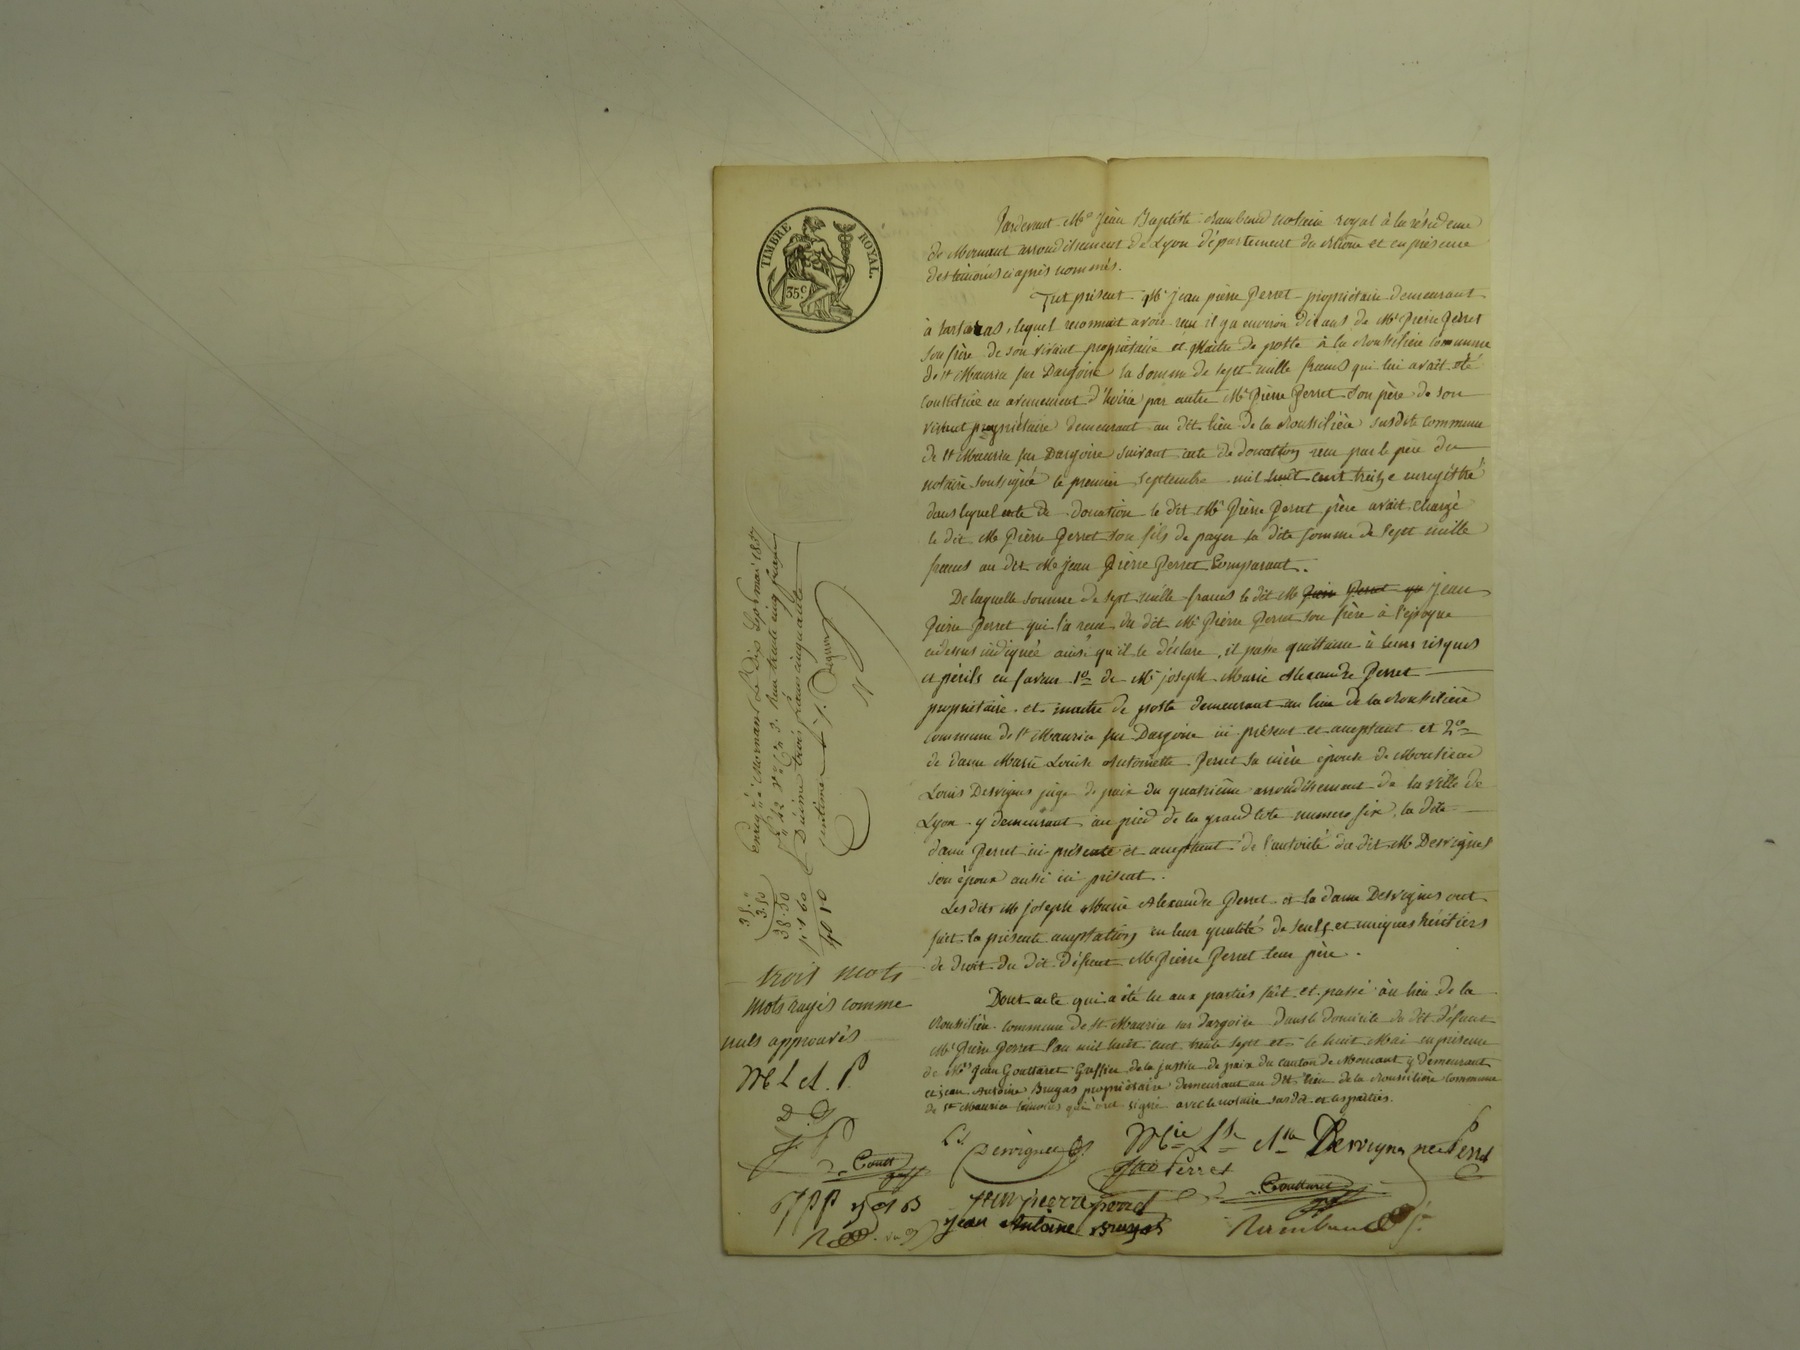 TIMBRE ROYAL.
35c
Pardevant Me Jean Baptiste Rambaud notaire royal à la résidence
de Mornant arrondissement de Lyon département du Rhône et en présence
des témoins ci après nommés.
Fut présent Mr jean pierre Perret propriétaire demeurant
à tartaras, lequel reconnait avoir reçu il y a environ dix ans de Mr Pierre Perret
son frère de son vivant propriétaire et Maitre de poste à la Roussilière commune
de St Maurice sur Dargoire la somme de sept mille francs qui lui avait été
constituée en avancement d'hoirie par autre Mr Pierre Perret son père de son
vivant propriétaire demeurant au dit lieu de la Roussilière susdite commune
de St Maurice sur Dargoire suivant acte de donation reçu par le père du
notaire soussigné le premier septembre mil huit cent treize enregistré
dans lequel acte de donation le dit Mr Pierre Perret père avait chargé
le dit Mr Pierre Perret son fils de payer la dite somme de sept mille
francs au dit Mr jean Pierre Perret Comparant.
De laquelle somme de sept mille francs le dit Mr Pierre Perret qu jean
Pierre Perret qui l'a reçue du dit Mr Pierre Perret son frère à l'époque
cidessus indiquée ainsi qu'il le déclare, il passe quittance à leurs risques
et périls en faveur 1o de Mr joseph Marie Alexandre Perret
propriétaire et maitre de poste demeurant au lieu de la Roussilière
commune de St Maurice sur Dargoire ici présent et acceptant et 2o
de dame Marie Louise Antoinette Perret sa mère épouse de Monsieur
Louis Desvignes juge de paix du quatrième arrondissement de la ville de
Lyon y demeurant au pied de la grand côte numero six, la dite
dame Perret ici présente et acceptant de l'autorité du dit Mr Desvignes
son époux aussi ici présent.
Les dits Mr joseph Marie Alexandre Perret et la dame Desvignes ont
fait la présente acceptation en leur qualité de seuls et uniques héritiers
de droit du dit défunt Mr Pierre Perret leur père.
Dont acte qui a été lu aux parties fait et passé au lieu de la
Roussilière commune de St Maurice sur dargoire dans le domicile du dit défunt
Mr Pierre Perret l'an mil huit cent trente sept et le huit Mai en présence
de Mr Jean Gouttaret Greffier de la justice de paix du canton de Mornant y demeurant
et jean Antoine Bruyas propriétaire demeurant au dit lieu de la Roussilière commune
de St Maurice témoins qui ont signé avec le notaire susdit et les parties.
Enregistré à Mornant Le Dix Sept mai 1837
Reçu trente cinq francs
Décime trois francs cinquante
centimes
35."
3.50
38.50
1.60
40 10
trois mots
mots rayés comme
nuls approuvés
M L A. P.
L. D.
J P
Goutt
Ls Desvignes
Mie Lse Ate Desvignes née Perret
Perret
jean pierre perret
Gouttaret
J P P
jean Antoine Bruyas
Rambaud